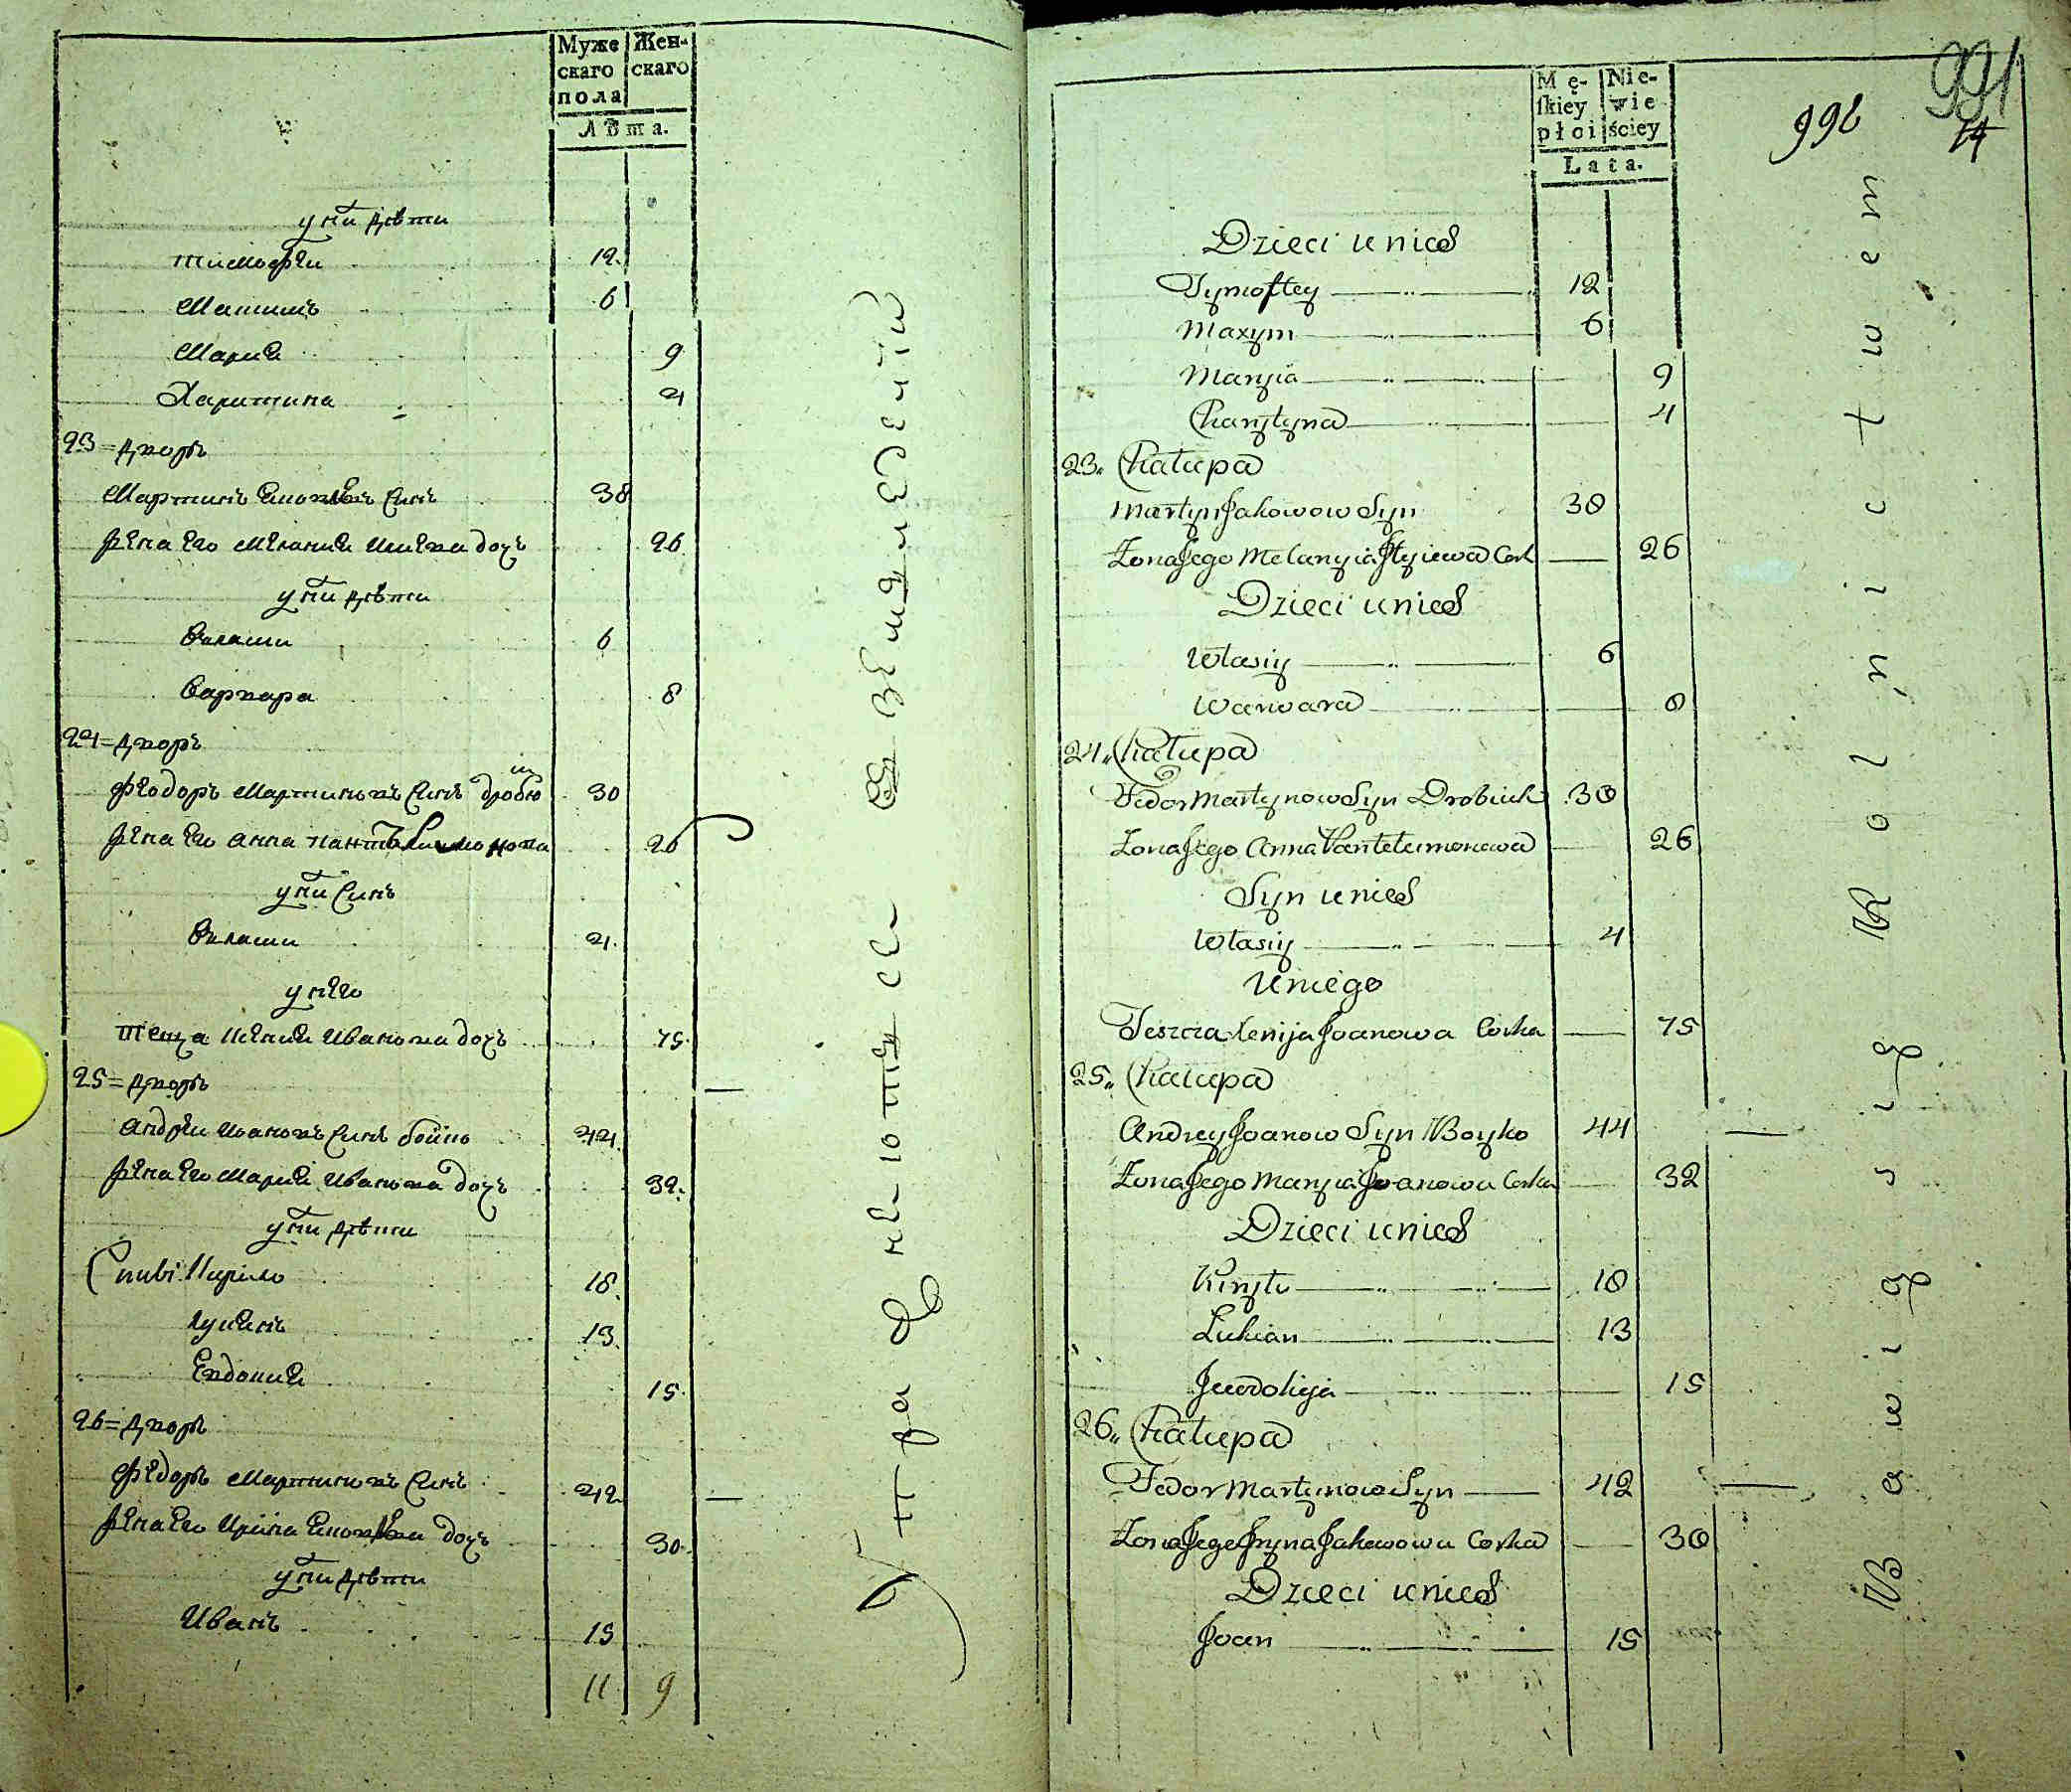 Муже
скаго
пола
Жен-
скаго
Лѣта.
у ни дѣти
Тимофѣи 12.
Маѯимъ 6
Мариѧ 9
Харитина 4
23= дворъ
Мартинъ Яковлѣвъ Синъ 38
Жена Его Меланиѧ Илиева дочъ 26
у ни дѣти
Власии 6
Варвара 8
24= дворъ
Феодоръ Мартиновъ Синъ дробю 30
Жена Его Анна Пантѣлимонова 26
у ни Синъ
Власии 4.
у него
Теща Ѯениѧ Иванова дочъ 75.
25= дворъ
Андрѣи Ивановъ Синъ бойко 44.
Жена Его Мариѧ Иванова дочъ 32.
у ни дѣти
Кирило 18.
Лукиѧнъ 13.
Евдокиѧ 15.
26= дворъ
Фѣдоръ Мартиновъ Синъ 42
Жена Его Ирина Яковлѣва дочъ 30.
у ни дѣти
Иванъ 15
11 9
Упражнѧютсѧ въ земледелїи
Mę-
skiey
płci
Nie-
wie
ściey
Lata.
992
991
14
Dzieci u nich
Tymoftey 12
Maxym 6
Maryia 9
Charytyna 4
23. Chałupa
Martyn Jakowow Syn 38
Żona Jego Melanyia Jlyiewa Cork 26
Dzieci u nich
Własiy 6
Warwara 8
24. Chałupa
Fedor Martynow Syn Drobiuk 30
Żona Jego Anna Panteleimonowa 26
Syn u nich
Własiy 4
U niego
Teszcza Xenija Joanowa Corka 75
25. Chałupa
Andrey Joanow Syn Boyko 44
Żona Jego Maryia Joanowa Corka 32
Dzieci u nich
Kiryło 18
Łukian 13
Jewdokija 15
26. Chałupa
Fedor Martynow Syn 42
Żona Jego Jryna Jakowowa Corka 30
Dzieci u nich
Joan 15
Bawią się Rolnictwem